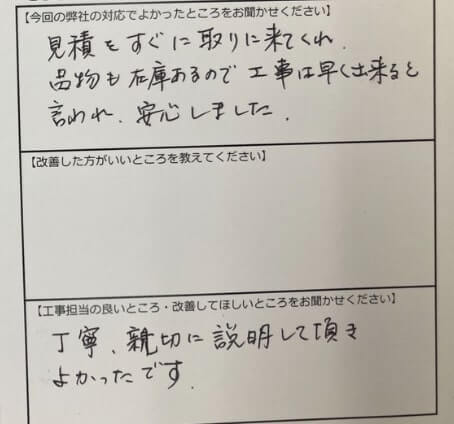 【今回の弊社の対応でよかったところをお聞かせください】
見積をすぐに取りに来てくれ、
品物も在庫あるので工事は早く出来ると
言われ、安心しました。
【改善した方がいいところを教えてください】
【工事担当の良いところ・改善してほしいところをお聞かせください】
丁寧、親切に説明して頂き
よかったです。